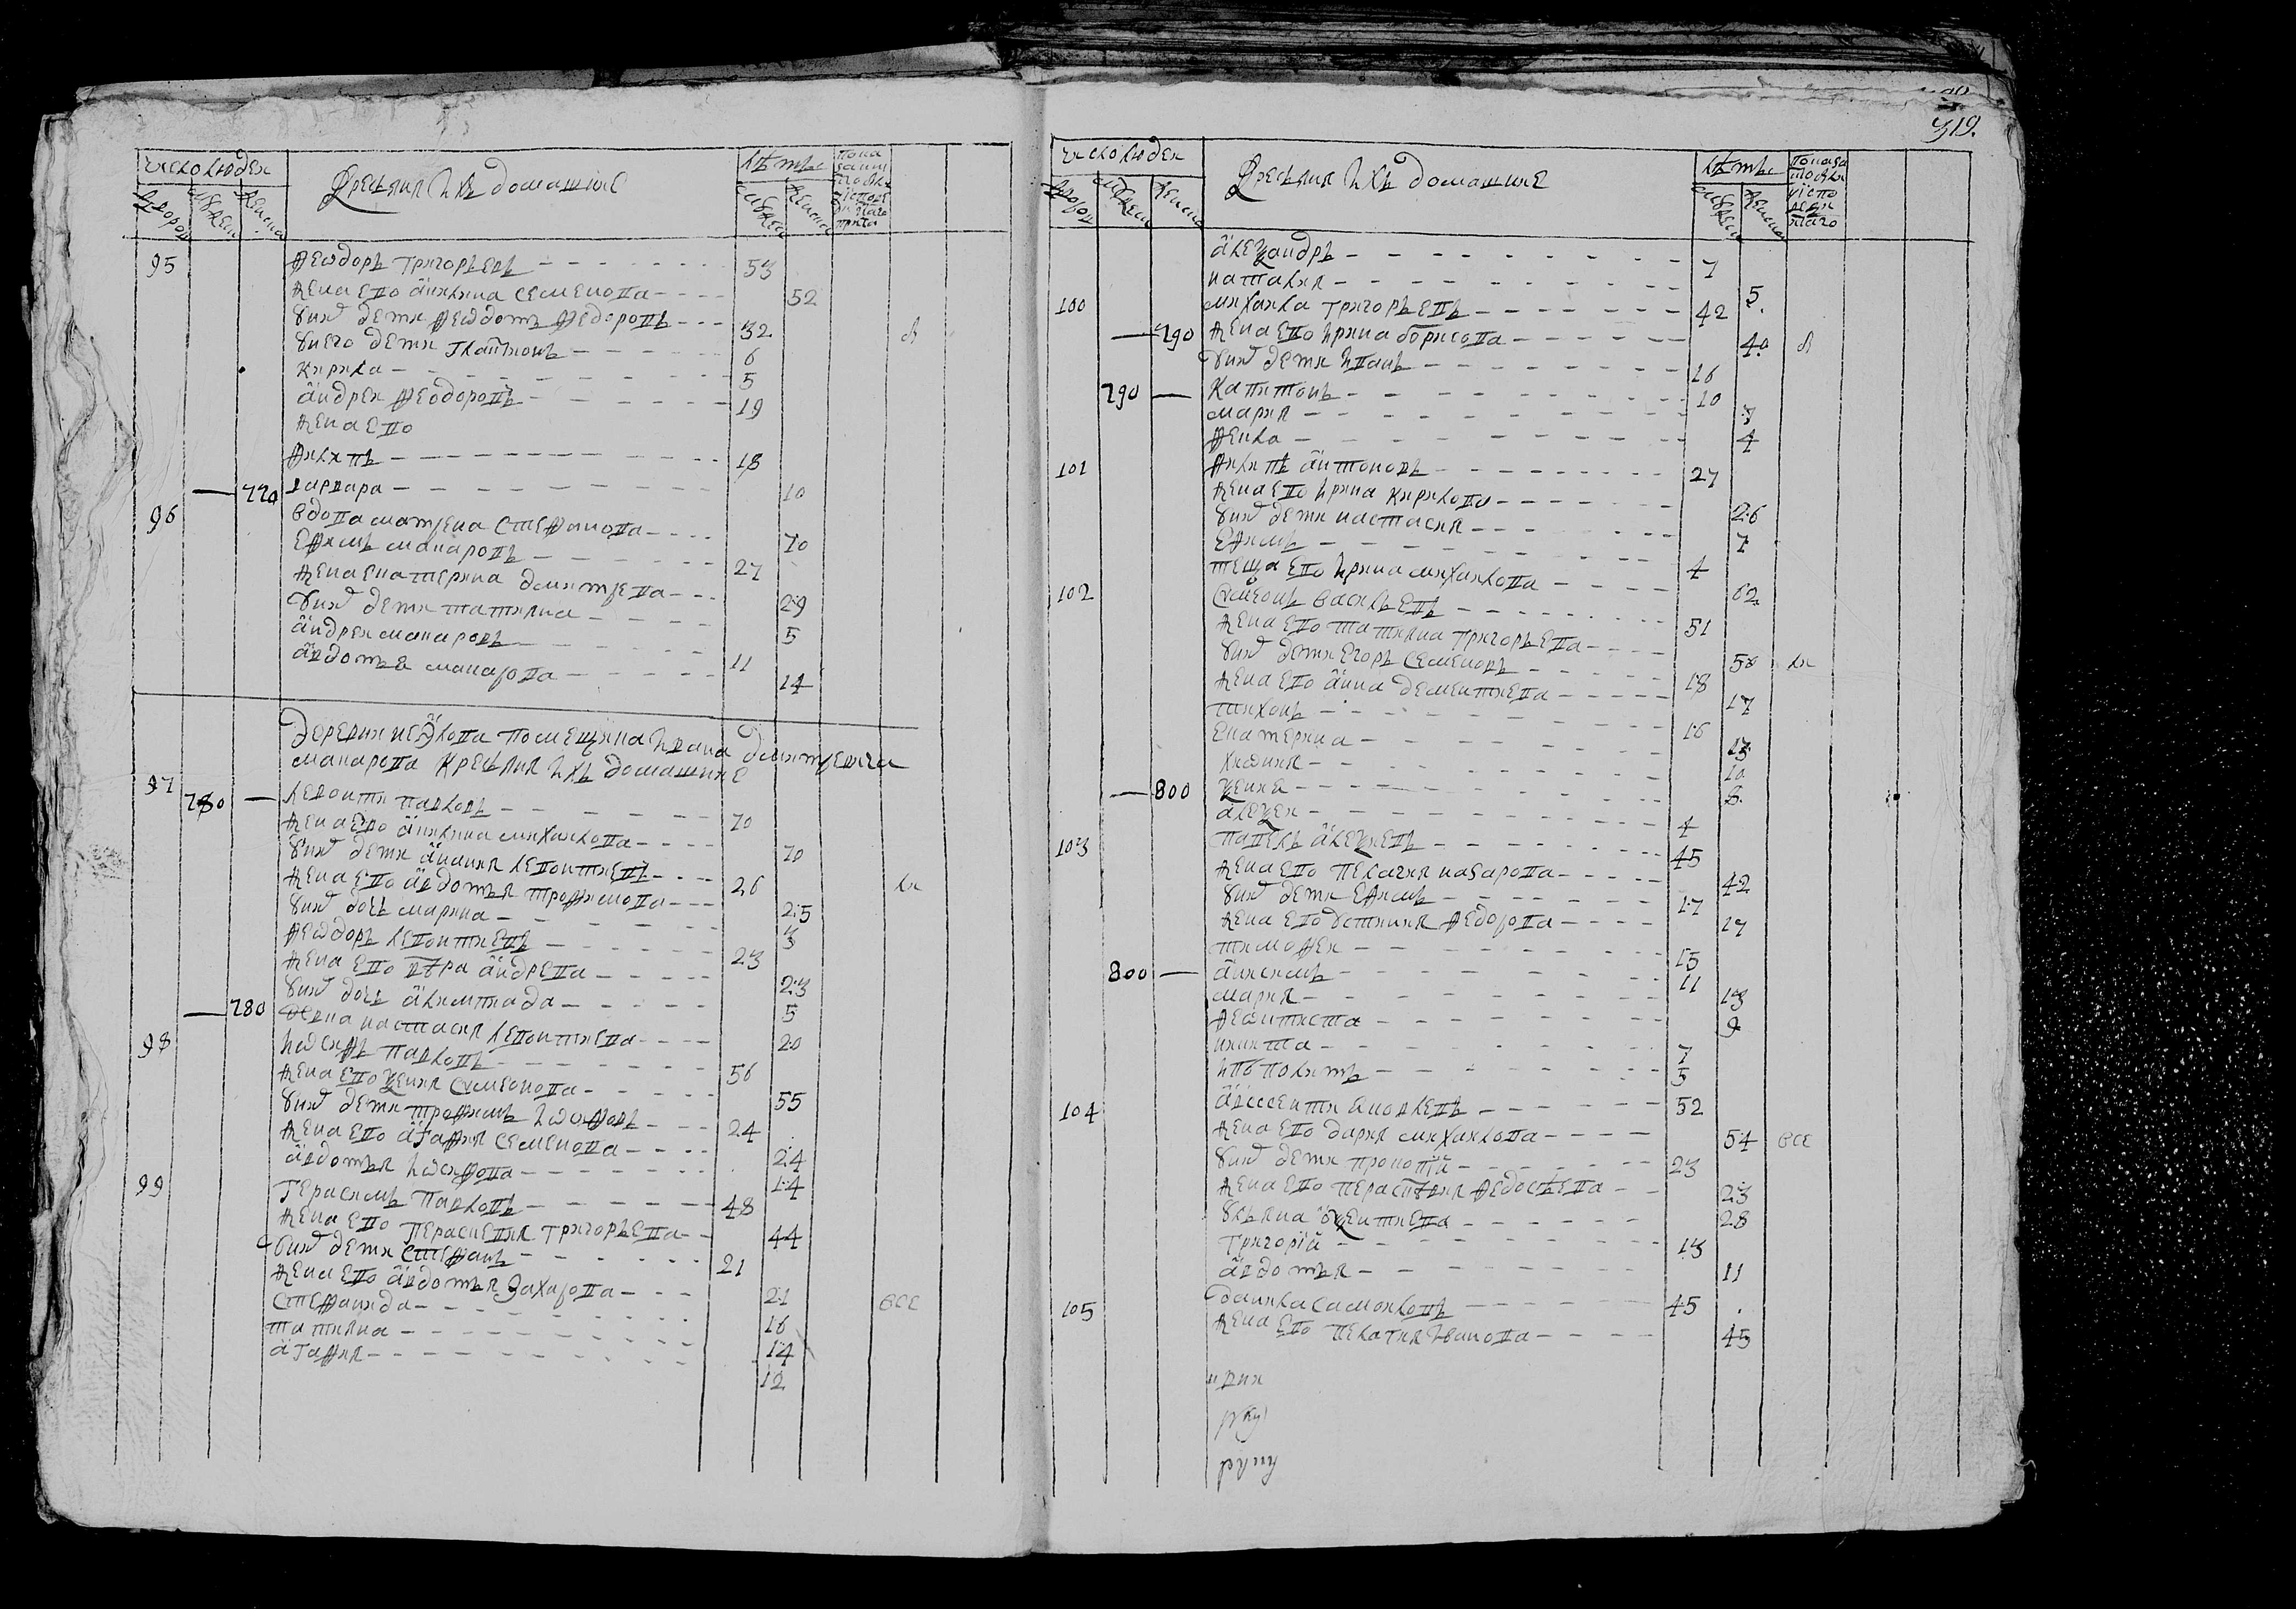 число людей
Дворов
Мужеск
Женска
Крестьяня ихъ домашние
лѣтъ
мужеск
женска
95 Феѡдоръ григорьевъ 53
жена ево анилина семенова 52
у них дети Феѡдотъ Федоровъ 32
у него дети глатион 6
кирила 5
андрей Феодоровъ 19
жена ево
Филипъ 18
770 варвара 10
96 вдова матрена стефанова 70
ефимъ макаровъ 27
жена екатерина дмитрева 29
у них дети татияна 5
андрей макаровъ 11
авдотья макарова 14
деревни помещика ивана дмитревича
макарова крестьяня ихъ домашние
97 780 леонти павловъ 70
жена ево анилина михаилова 70
у них дети анания левонтиевъ 26
жена ево авдотья трофимова 25
у них дочь марина 3
Феѡдоръ левонтиевъ 23
жена ево андрева 23
у них дочь алимпиада 5
780 девка настасия левонтиева 20
98 иѡсифъ павловъ 56
жена ево ѯения симеонова 55
у них дети трофимъ иѡсифовъ 24
жена ево агафия семенова 24
авдотья иѡсифова 14
99 герасимъ павловъ 48
жена ево парасковия григорьева 44
у них дети стефанъ 21
жена ево авдотья захарова 21
стефанида 16 все
татияна 14
агафия 12
319.
число людей
Дворов
Мужеск
Женска
Крестьяня ихъ домашние
лѣтъ
мужеск
женска
алеѯандръ 7
наталия 5
100 михаила григорьевъ 42
790 жена ево ирина борисова 40
у них дети иванъ 16
790 капитонъ 10
мария 7
Фекла 4
101 Филипъ антоновъ 27
жена ево ирина кирилова 26
у них дети настасия 7
ефимъ 4
теща ево ирина михаилова 62
102 симеонъ василевъ 51
жена ево татияна григорьева 50
у них дети егоръ семеновъ 18
жена ево анна дементиева 17
тихонъ 16
екатерина 13
10
800 ѯения 8
алеѯей 4
103 павелъ алеѯиевъ 45
жена ево пелагия назарова 42
у них дети ефимъ 17
жена ево устиния Федорова 17
тимофей 15
800 анисимъ 11
мария 13
Феѡктиста 9
никита 7
иполитъ 5
104 авксенти иковлевъ 52
жена ево дария михаилова 54 все
у них дети прокопий 23
жена ево парасковия Федосѣева 23
ульяна авѯентиева 28
григорий 13
авдотья 11
105 данила самоиловъ 45
жена ево пелагия иванова 45